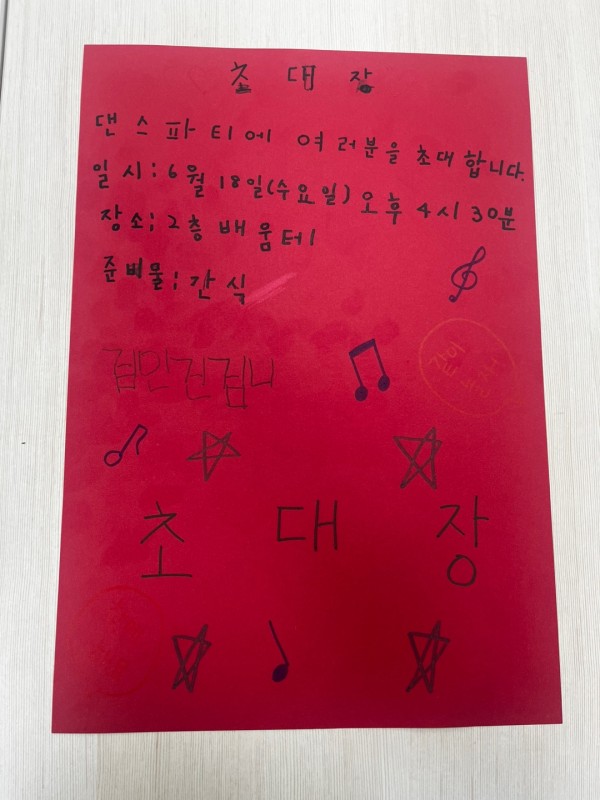 초대장
댄스파티에 여러분을 초대합니다.
일시: 6월 18일(수요일) 오후 4시 30분
장소: 2층 배움터
준비물: 간식
초대장